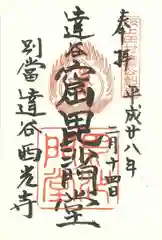 奉拝
平成廿八年
二月十四日
達谷
窟毘沙門堂
別當達谷西光寺